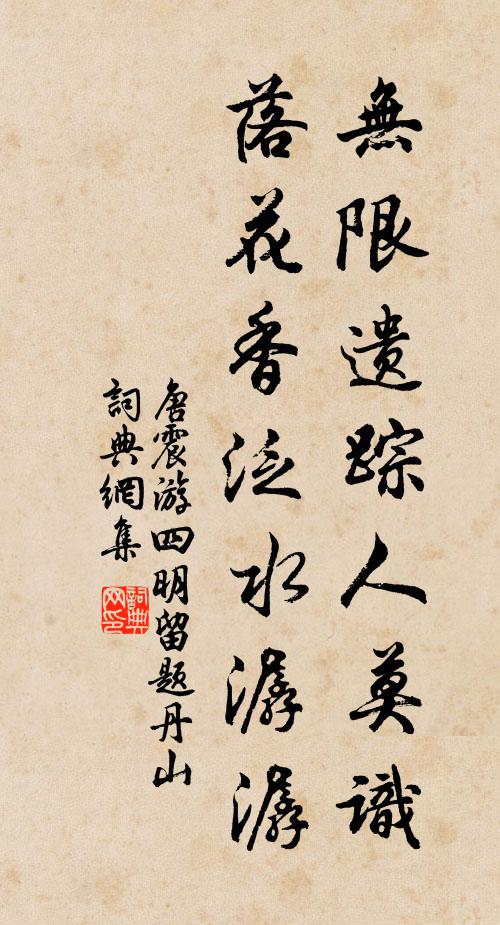 無限遺踪人莫識
落花香泛水潺潺
唐震游四明留題丹山
詞典網集
詞典
网印